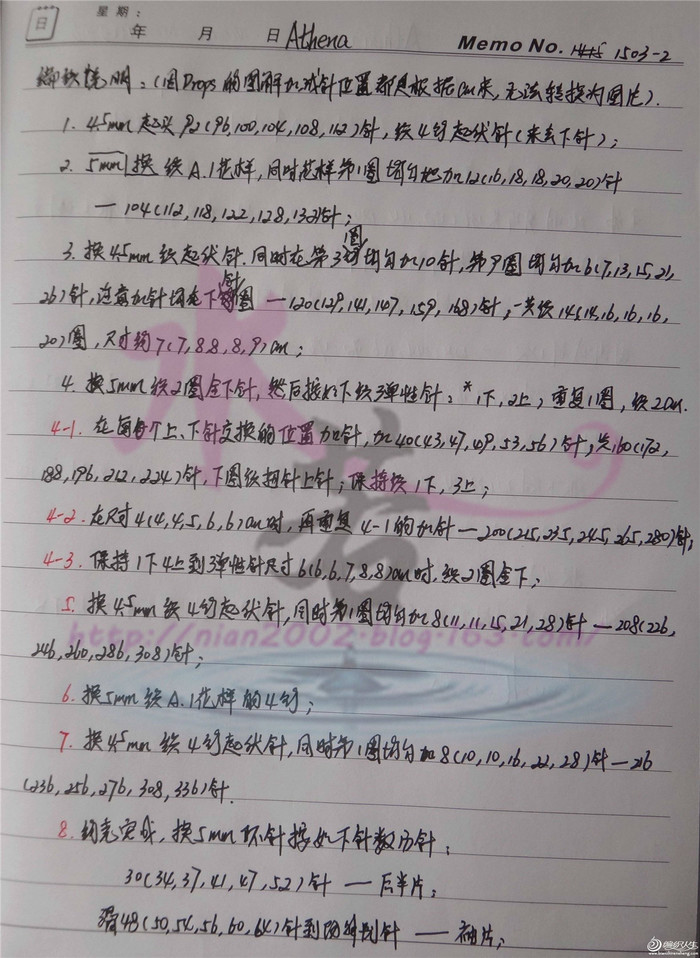 日
星期：
年 月 日 Athena
Memo No. 1503-2
编织说明：（因Drops的图解加减针位置都是根据cm来，无法转换为图片）.
1. 4.5mm起头92(96,100,104,108,112)针，织4行起伏针（来去下针）；
2. 5mm换织A.1花样，同时花样第1圈均匀地加12(16,18,18,20,20)针
— 104(112,118,122,128,132)针；
3. 换4.5mm织起伏针.同时在第3圈均匀加10针，第9圈均匀加6(7,13,15,21,
26)针，这前加针均在下针圈 — 120(129,141,147,159,168)针，一共织14(14,16,16,16,
20)圈，尺寸约7(7,8,8,8,9)cm；
4. 换5mm织2圈全下针，然后按以下织3弹性针：*1下，2上，重复1圈，织2cm.
4-1. 在每个上、下针交换的位置加针，加40(43,47,49,53,56)针，共160(172,
188,196,212,224)针，下圈织扭针上针；保持织1下，3上；
4-2. 在尺寸4(4,4,5,6,6)cm时，再重复4-1的加针 — 200(215,235,245,265,280)针；
4-3. 保持1下4上到3弹性针尺寸6(6,6,7,8,8)cm时，织2圈全下；
5. 换4.5mm织4行起伏针，同时第1圈均匀加8(11,11,15,21,28)针 — 208(226,
246,260,286,308)针；
6. 换5mm织A.1花样的4行；
7. 换4.5mm织4行起伏针，同时第1圈均匀加8(10,10,16,22,28)针 — 216
(236,256,276,308,336)针.
8. 约克完成，换5mm环针按如下针数分针：
30(34,37,41,47,52)针 — 后半片；
滑48(50,54,56,60,64)针到防绊别针 — 袖片；
水若
http://nian2002.blog.163.com/
编织人生